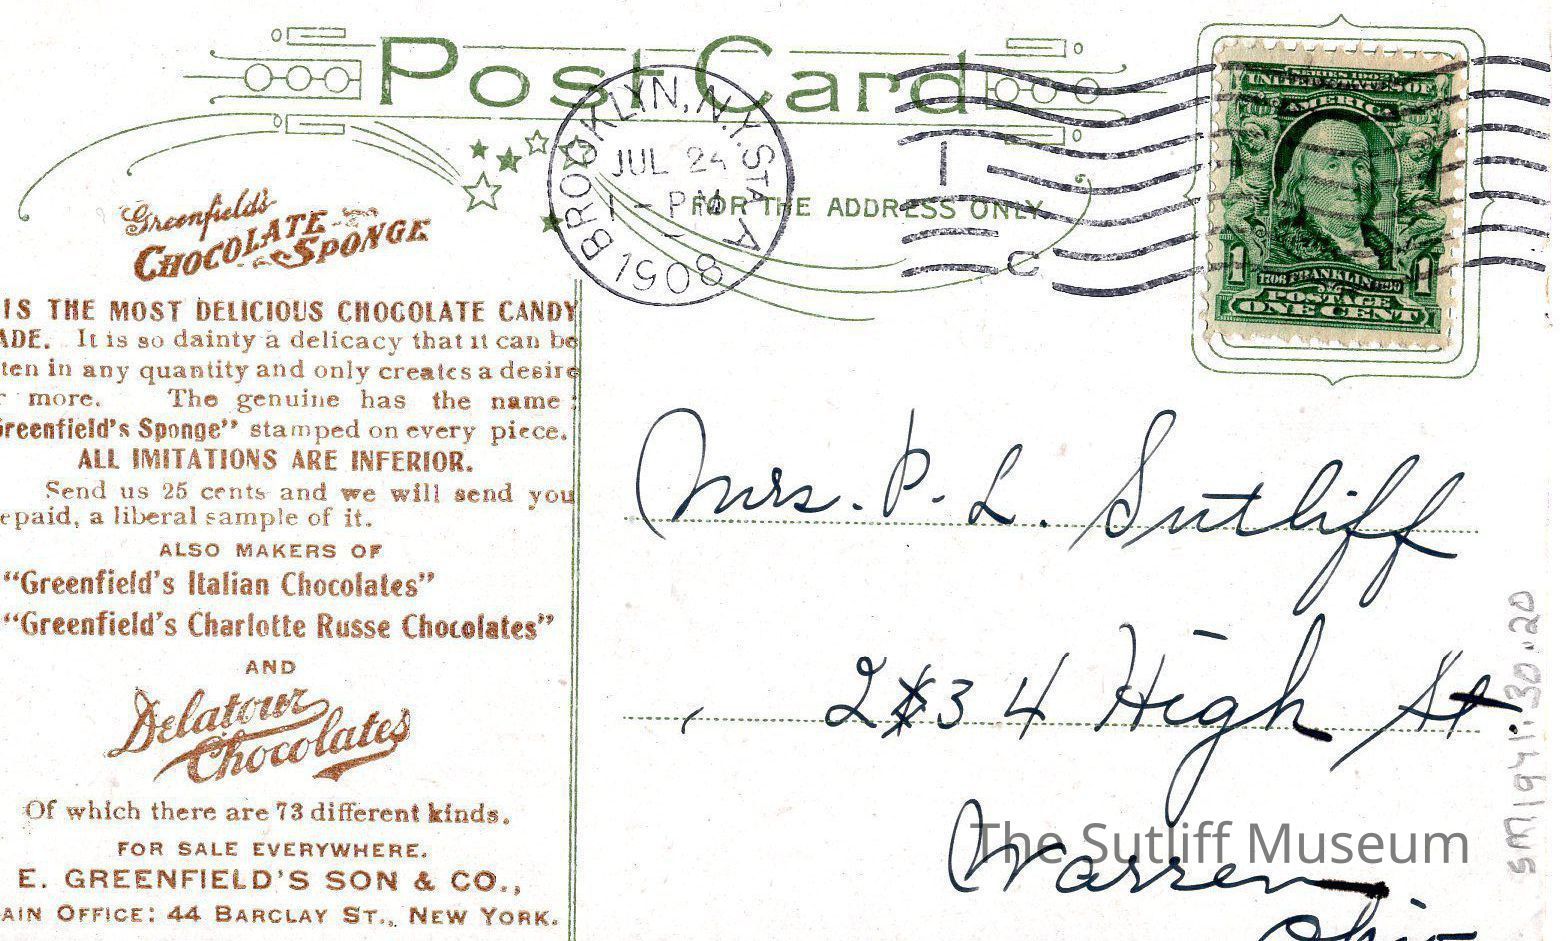 Post Card
BROOKLYN, N.Y. STA. A
JUL 24
1 - PM
1908
FOR THE ADDRESS ONLY.
C
UNITED STATES OF
AMERICA
1706 FRANKLIN 1790
1 1
POSTAGE
ONE CENT
Greenfield's
CHOCOLATE SPONGE
IS THE MOST DELICIOUS CHOCOLATE CANDY
ADE. It is so dainty a delicacy that it can be
ten in any quantity and only creates a desire
r more. The genuine has the name :
Greenfield's Sponge" stamped on every piece.
ALL IMITATIONS ARE INFERIOR.
Send us 25 cents and we will send you
epaid, a liberal sample of it.
ALSO MAKERS OF
"Greenfield's Italian Chocolates"
"Greenfield's Charlotte Russe Chocolates"
AND
Delatour
Chocolates
Of which there are 73 different kinds.
FOR SALE EVERYWHERE.
E. GREENFIELD'S SON & CO.,
AIN OFFICE: 44 BARCLAY ST., NEW YORK.
Mrs. P. L. Sutliff
234 High St.
Warren
Ohio
The Sutliff Museum
SM1941.30.20